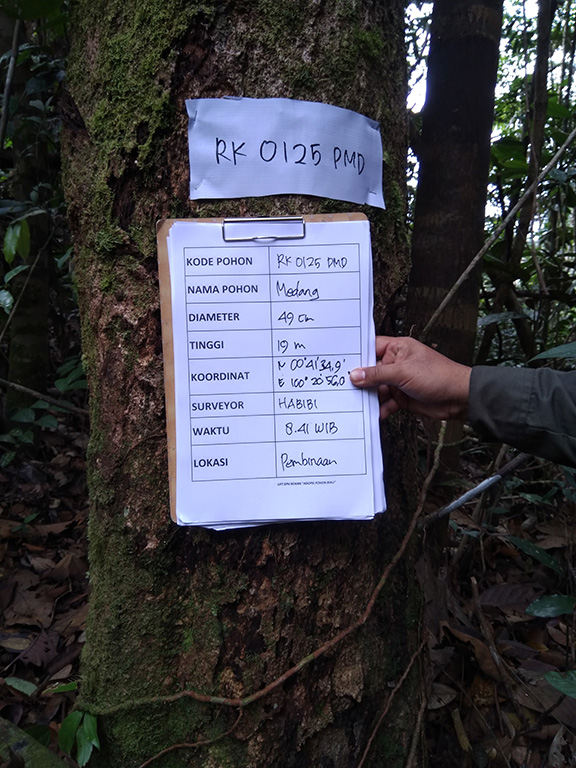 RK 0125 PMD
KODE POHON RK 0125 PMD
NAMA POHON Medang
DIAMETER 49 cm
TINGGI 19 m
KOORDINAT N 00°41'34,9"
E 100°20'56,0"
SURVEYOR HABIBI
WAKTU 8.41 WIB
LOKASI Pembinaan
"ADOPSI POHON